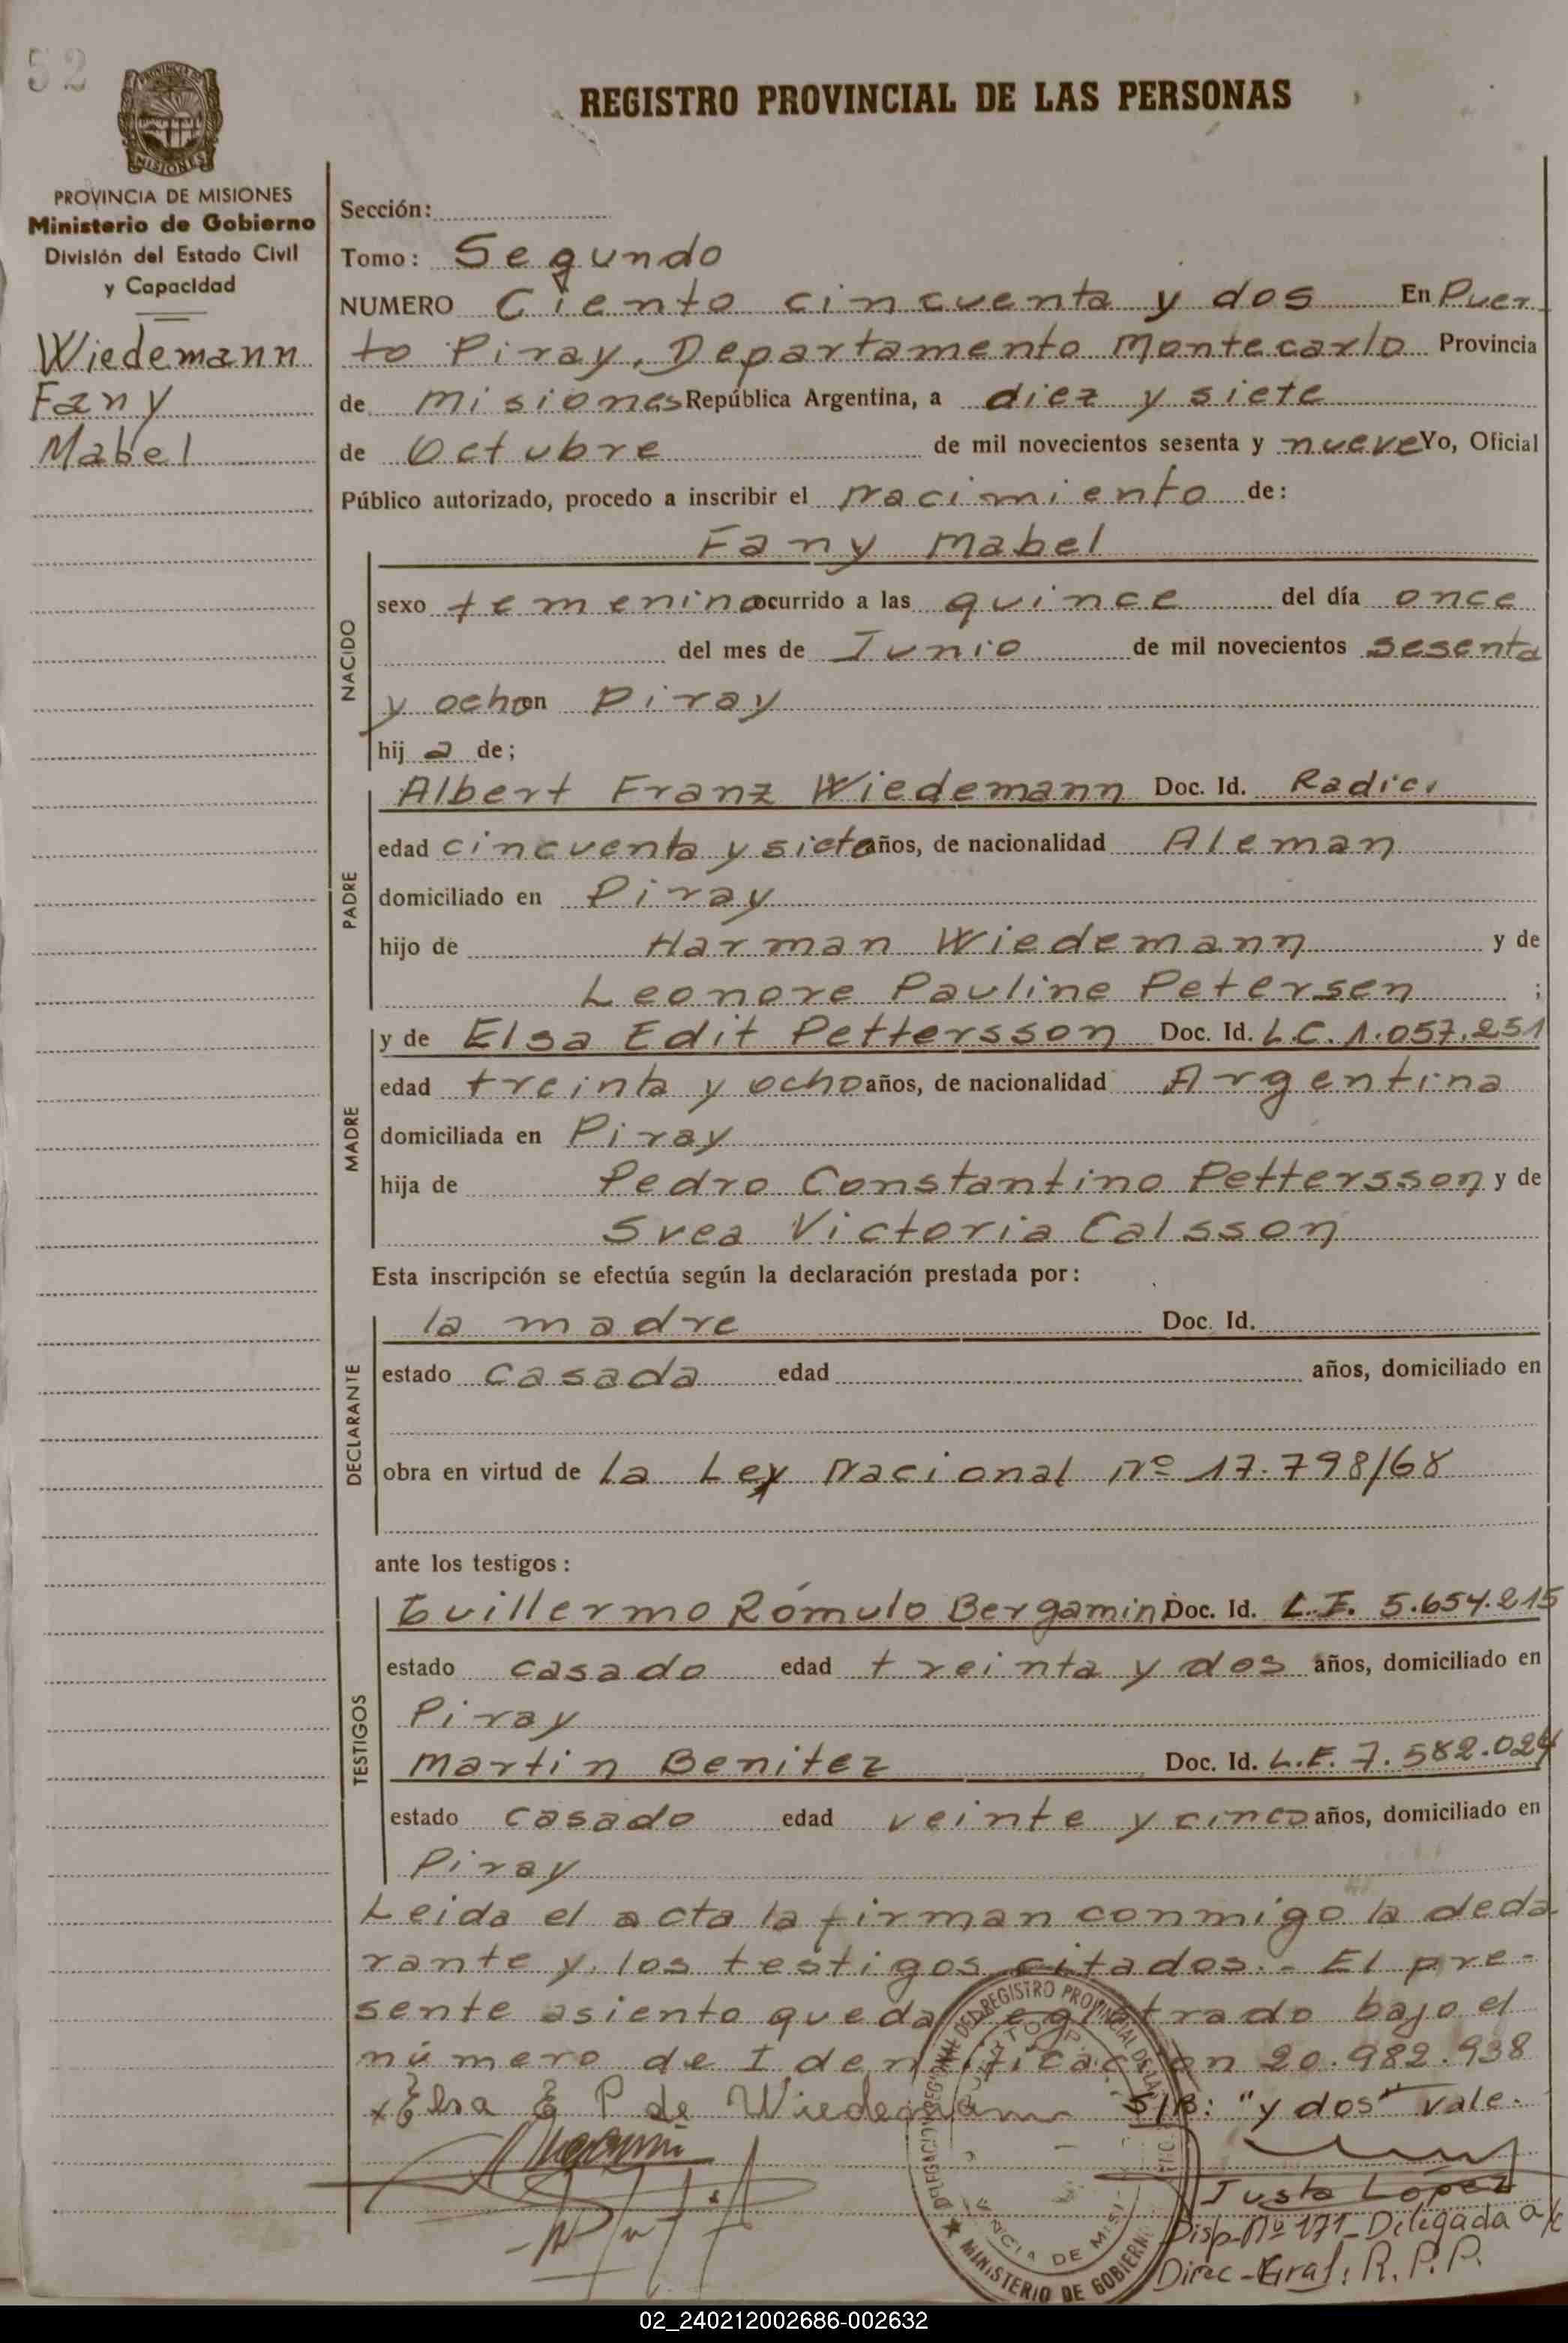 52
PROVINCIA DE
MISIONES
REGISTRO PROVINCIAL DE LAS PERSONAS
PROVINCIA DE MISIONES
Ministerio de Gobierno
División del Estado Civil
y Capacidad
Wiedemann
Fany
Mabel
Sección:
Tomo: Segundo
NUMERO Ciento cincuenta y dos En Puer
to Piray, Departamento Montecarlo Provincia
de Misiones República Argentina, a diez y siete
de Octubre de mil novecientos sesenta y nueve Yo, Oficial
Público autorizado, procedo a inscribir el nacimiento de:
NACIDO
Fany Mabel
sexo femenino ocurrido a las quince del día once
del mes de Junio de mil novecientos sesenta
y ocho en Piray
hij a de;
PADRE
Albert Franz Wiedemann Doc. Id. Radic.
edad cincuenta y siete años, de nacionalidad Aleman
domiciliado en Piray
hijo de Harman Wiedemann y de
Leonore Pauline Petersen ;
MADRE
y de Elsa Edit Pettersson Doc. Id. L.C. 1.057.251
edad treinta y ocho años, de nacionalidad Argentina
domiciliada en Piray
hija de Pedro Constantino Pettersson y de
Svea Victoria Calsson
Esta inscripción se efectúa según la declaración prestada por:
DECLARANTE
la madre Doc. Id.
estado casada edad años, domiciliado en
obra en virtud de la Ley Nacional Nº 17.798/68
ante los testigos:
TESTIGOS
Guillermo Rómulo Bergamini Doc. Id. L.E. 5.654.215
estado casado edad treinta y dos años, domiciliado en
Piray
Martin Benitez Doc. Id. L.E. 7.582.024
estado casado edad veinte y cinco años, domiciliado en
Piray
Leida el acta la firman conmigo la decla
rante y los testigos citados.- El pre-
sente asiento queda registrado bajo el
número de Identificación 20.982.938
x Elsa E P de Wiedemann S/B: "y dos" vale.
DELEGACION REGIONAL DEL REGISTRO PROVINCIAL DE LAS
MINISTERIO DE GOBIERNO
Justa López
Disp-Nº 171-Delegada a/c
Direc-Gral. R.P.P.
02_240212002686-002632